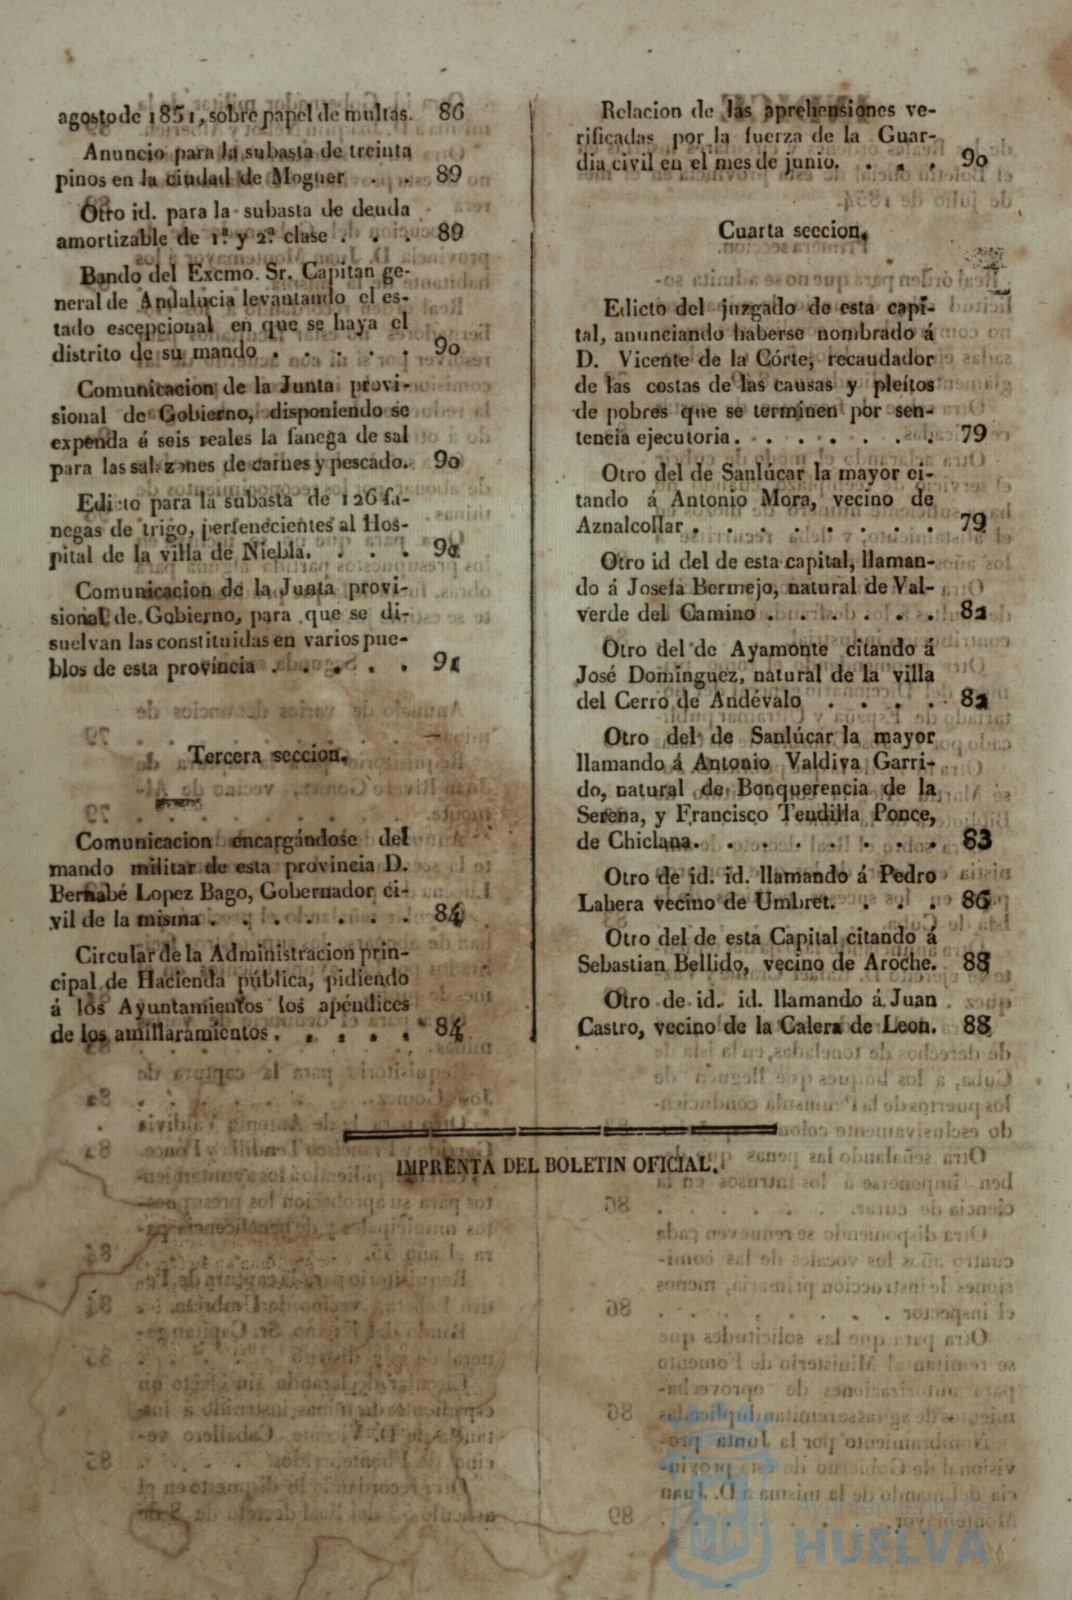 agosto de 1851, sobre papel de multas. 86
Anuncio para la subasta de treinta
pinos en la ciudad de Moguer . . 89
Otro id. para la subasta de deuda
amortizable de 1.ª y 2.ª clase . . . 89
Bando del Excmo. Sr. Capitan ge-
neral de Andalucia levantando el es-
tado escepcional en que se haya el
distrito de su mando . . . . . . 90
Comunicacion de la Junta provi-
sional de Gobierno, disponiendo se
expenda á seis reales la fanega de sal
para las salazones de carnes y pescado. 90
Edicto para la subasta de 126 fa-
negas de trigo, pertenecientes al Hos-
pital de la villa de Niebla. . . . 90
Comunicacion de la Junta provi-
sional de Gobierno, para que se di-
suelvan las constituidas en varios pue-
blos de esta provincia . . . . . . 91
Tercera seccion.
Comunicacion encargándose del
mando militar de esta provincia D.
Bernabé Lopez Bago, Gobernador ci-
vil de la misma . . . . . . . . 84
Circular de la Administracion prin-
cipal de Hacienda pública, pidiendo
á los Ayuntamientos los apéndices
de los amillaramientos . . . . . . 84
Relacion de las aprehensiones ve-
rificadas por la fuerza de la Guar-
dia civil en el mes de junio. . . . 90
Cuarta seccion.
Edicto del juzgado de esta capi-
tal, anunciando haberse nombrado á
D. Vicente de la Córte, recaudador
de las costas de las causas y pleitos
de pobres que se terminen por sen-
tencia ejecutoria. . . . . . . . 79
Otro del de Sanlúcar la mayor ci-
tando á Antonio Mora, vecino de
Aznalcollar . . . . . . . . . 79
Otro id del de esta capital, llaman-
do á Josefa Bermejo, natural de Val-
verde del Camino . . . . . . . 82
Otro del de Ayamonte citando á
José Dominguez, natural de la villa
del Cerro de Andévalo . . . . . 82
Otro del de Sanlúcar la mayor
llamando á Antonio Valdiva Garri-
do, natural de Bonquerencia de la
Serena, y Francisco Tendilla Ponce,
de Chiclana. . . . . . . . . 83
Otro de id. id. llamando á Pedro
Labera vecino de Umbret. . . . . 86
Otro del de esta Capital citando á
Sebastian Bellido, vecino de Aroche. 88
Otro de id. id. llamando á Juan
Castro, vecino de la Calera de Leon. 88
IMPRENTA DEL BOLETIN OFICIAL.
Ayuntamiento de
HUELVA